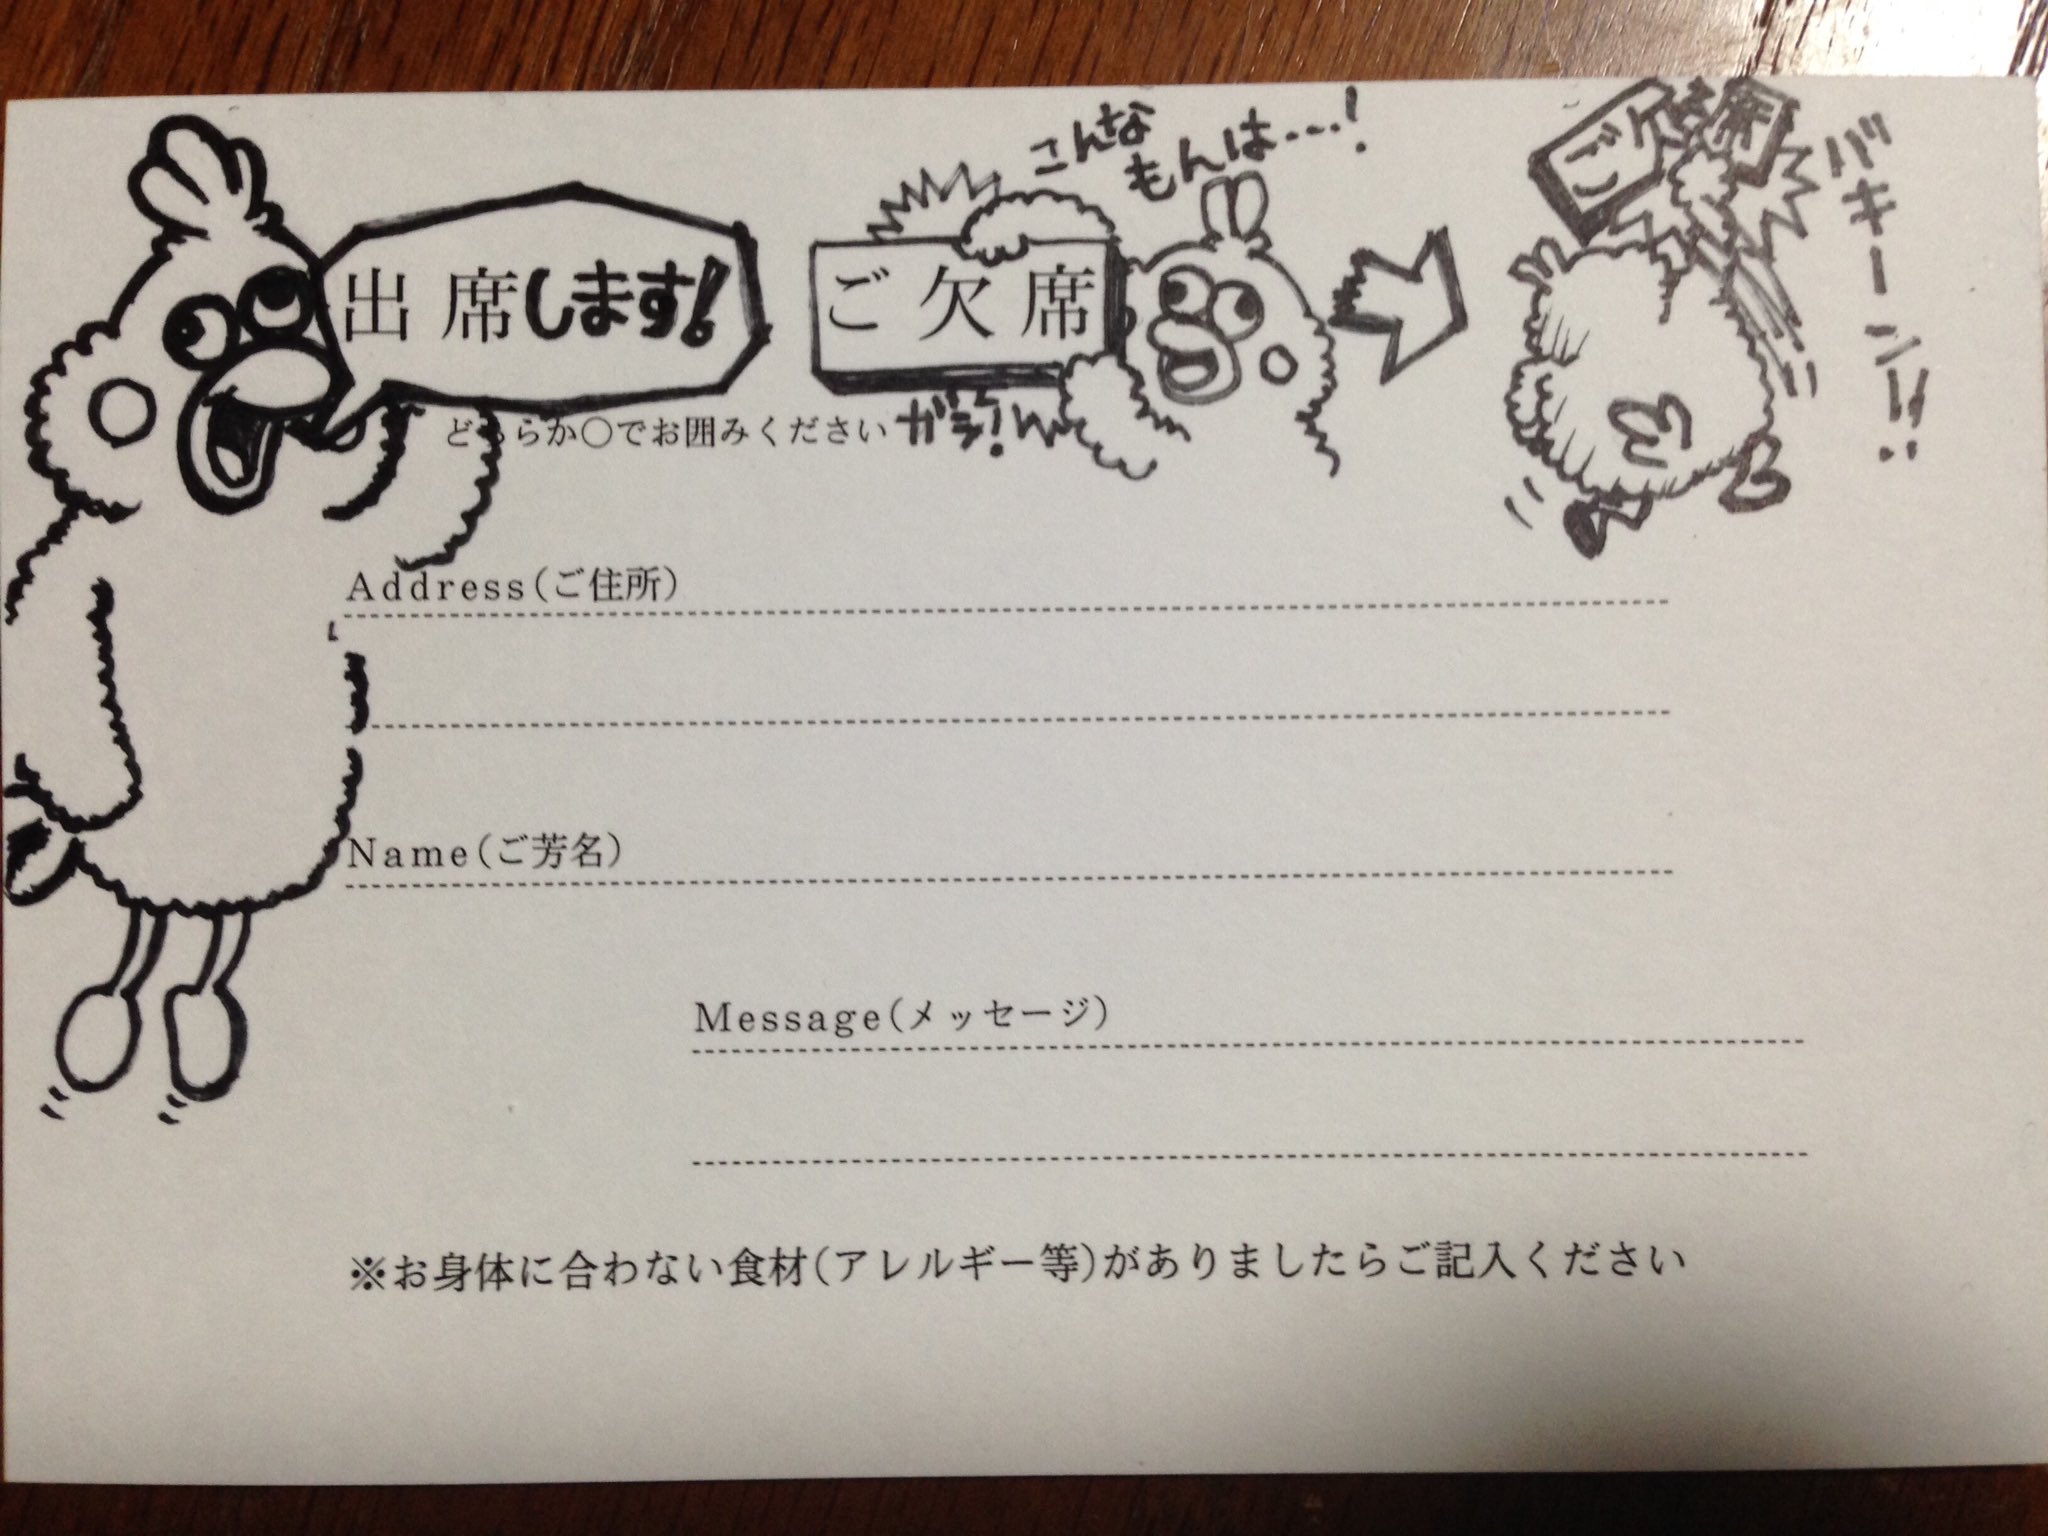 出席します!
ご欠席
こんな
もんは…!
ご 席
バキーン!!
どちらか○でお囲みください
Address(ご住所)
Name(ご芳名)
Message(メッセージ)
※お身体に合わない食材(アレルギー等)がありましたらご記入ください